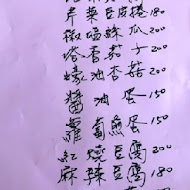 芹菜豆皮捲180
椒塩絲瓜200
塔香茄子200
蠔油杏菇200
醬油蛋150
蘿蔔煎蛋150
紅燒豆腐200
麻辣豆腐180